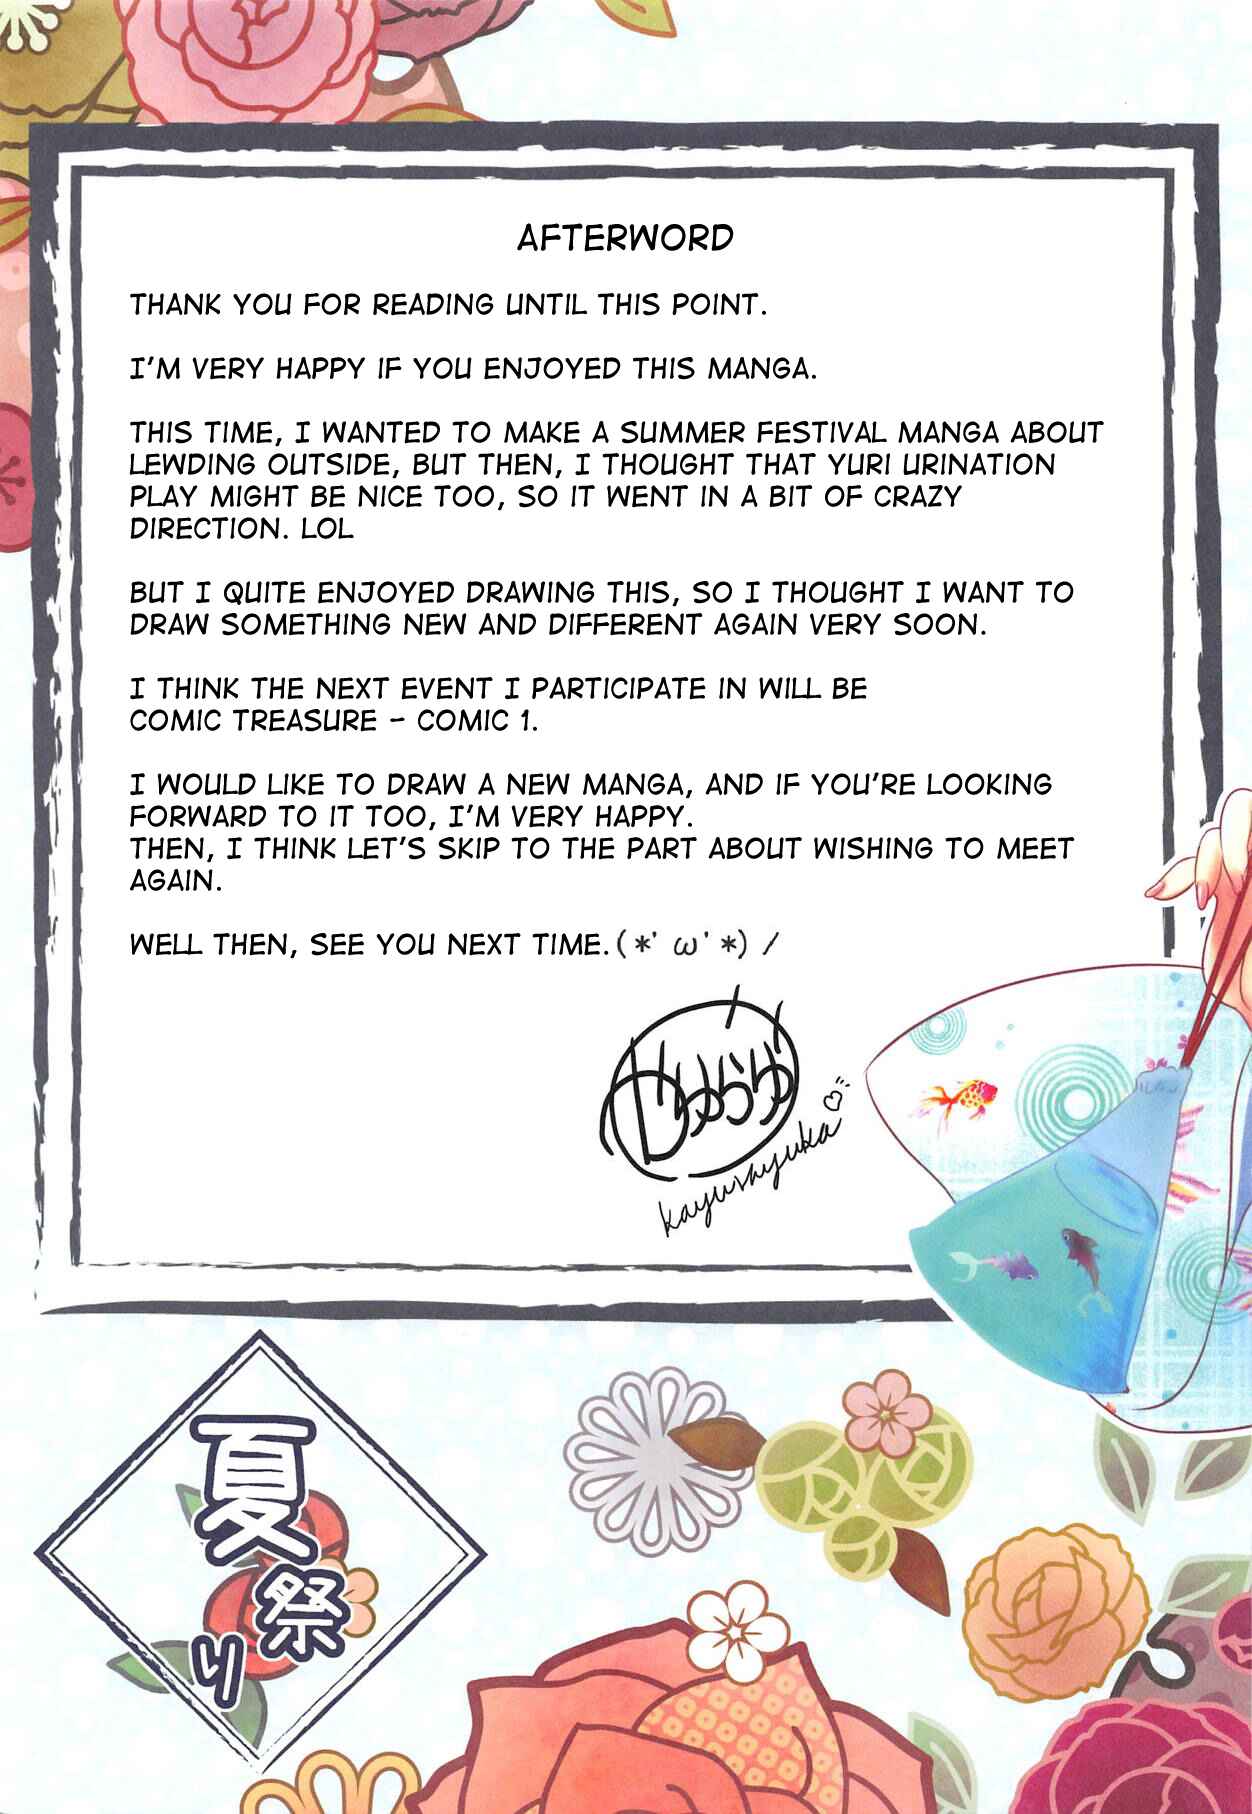 AFTERWORD
THANK YOU FOR READING UNTIL THIS POINT.
I'M VERY HAPPY IF YOU ENJOYED THIS MANGA.
THIS TIME, I WANTED TO MAKE A SUMMER FESTIVAL MANGA ABOUT
LEWDING OUTSIDE, BUT THEN, I THOUGHT THAT YURI URINATION
PLAY MIGHT BE NICE TOO, SO IT WENT IN A BIT OF CRAZY
DIRECTION. LOL
BUT I QUITE ENJOYED DRAWING THIS, SO I THOUGHT I WANT TO
DRAW SOMETHING NEW AND DIFFERENT AGAIN VERY SOON.
I THINK THE NEXT EVENT I PARTICIPATE IN WILL BE
COMIC TREASURE - COMIC 1.
I WOULD LIKE TO DRAW A NEW MANGA, AND IF YOU'RE LOOKING
FORWARD TO IT TOO, I'M VERY HAPPY.
THEN, I THINK LET'S SKIP TO THE PART ABOUT WISHING TO MEET
AGAIN.
WELL THEN, SEE YOU NEXT TIME. (*'ω'*) /
kayushyuka
夏祭り